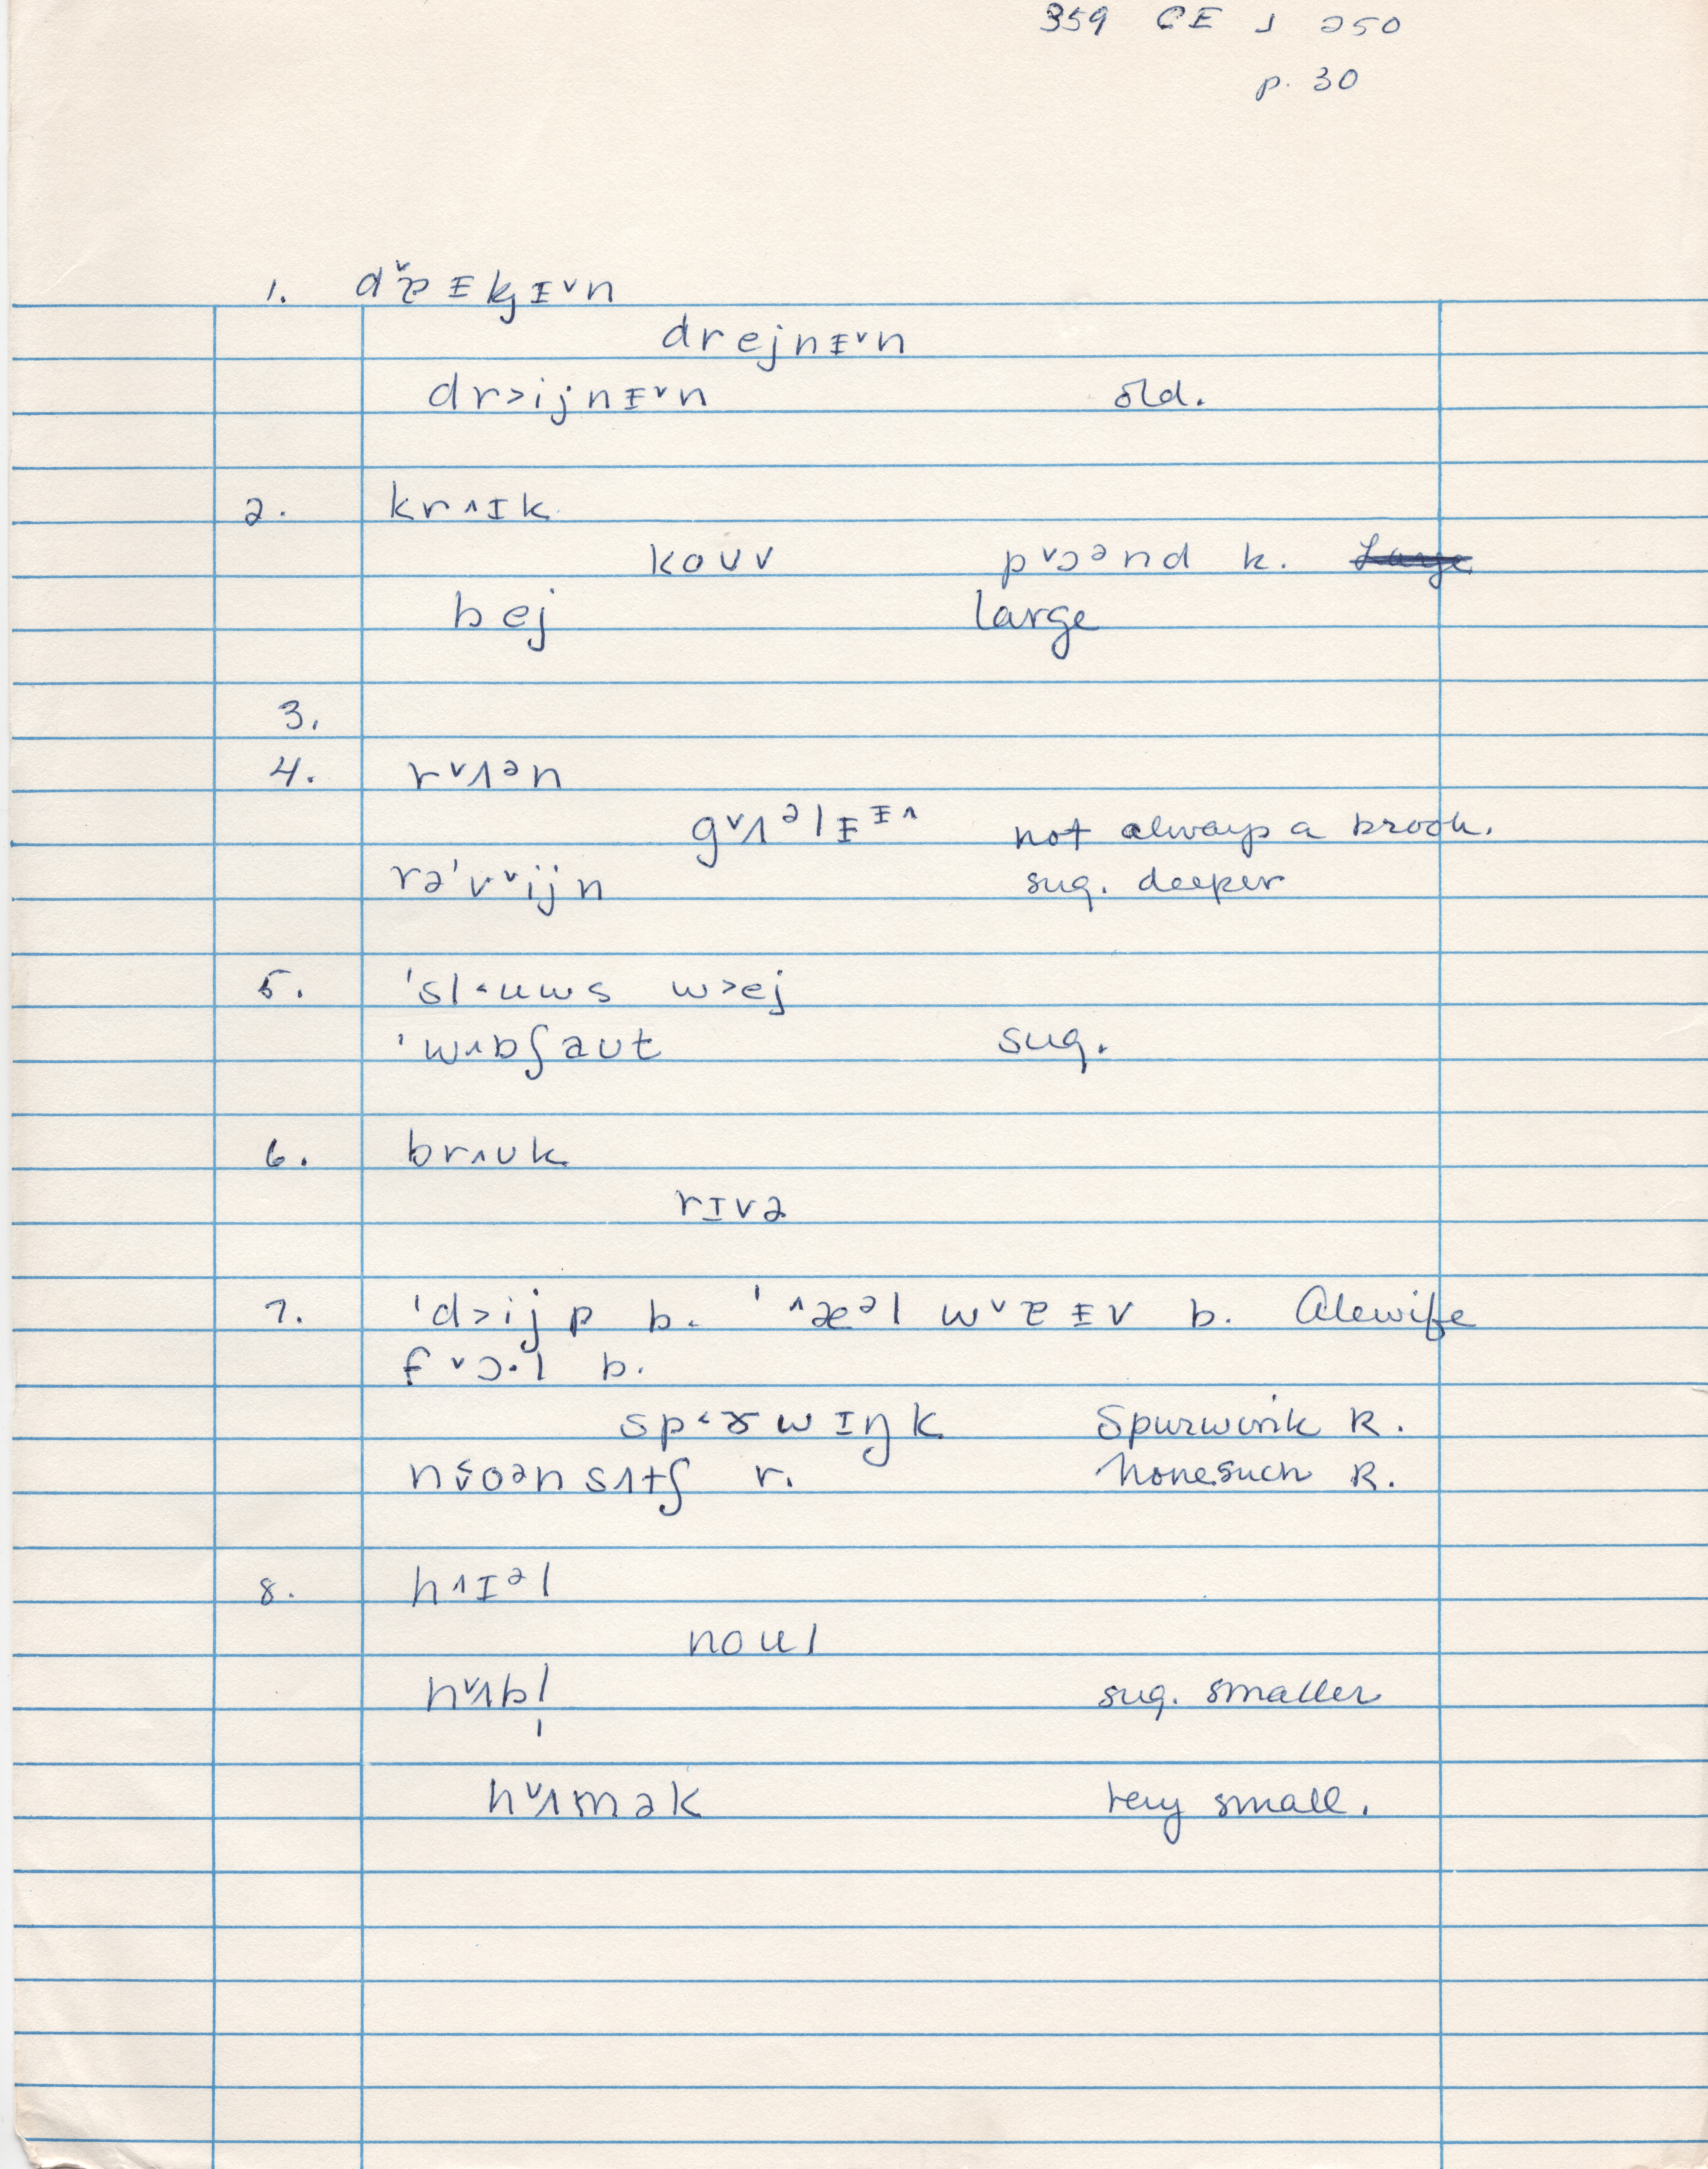 359 CE J 250
p. 30
1. dˇɐ ᵻ kj ᵻ ˇn
drejnᵻˇn
dr>ijnᵻˇn old.
2. kr^ɪk
kouv pˇɔᵊnd k.
bej large
3.
4. rˇʌᵊn
gˇʌᵊlᵻᵻ^ not always a brook.
rə'vˇijn sug. deeper
5. 'sl<uws w>ej
'wʌbʃaut sug.
6. br^uk
rɪvə
7. 'd>ijp b. '^æᵊl wˇɐᵻv b. Alewife
fˇɔ·l b.
sp<ɝwɪŋk Spurwink R.
nˇ<oᵊnsʌtʃ r. Nonesuch R.
8. h^ɪᵊl
noul
nˇʌbl̩ sug. smaller
hˇʌmək very small.